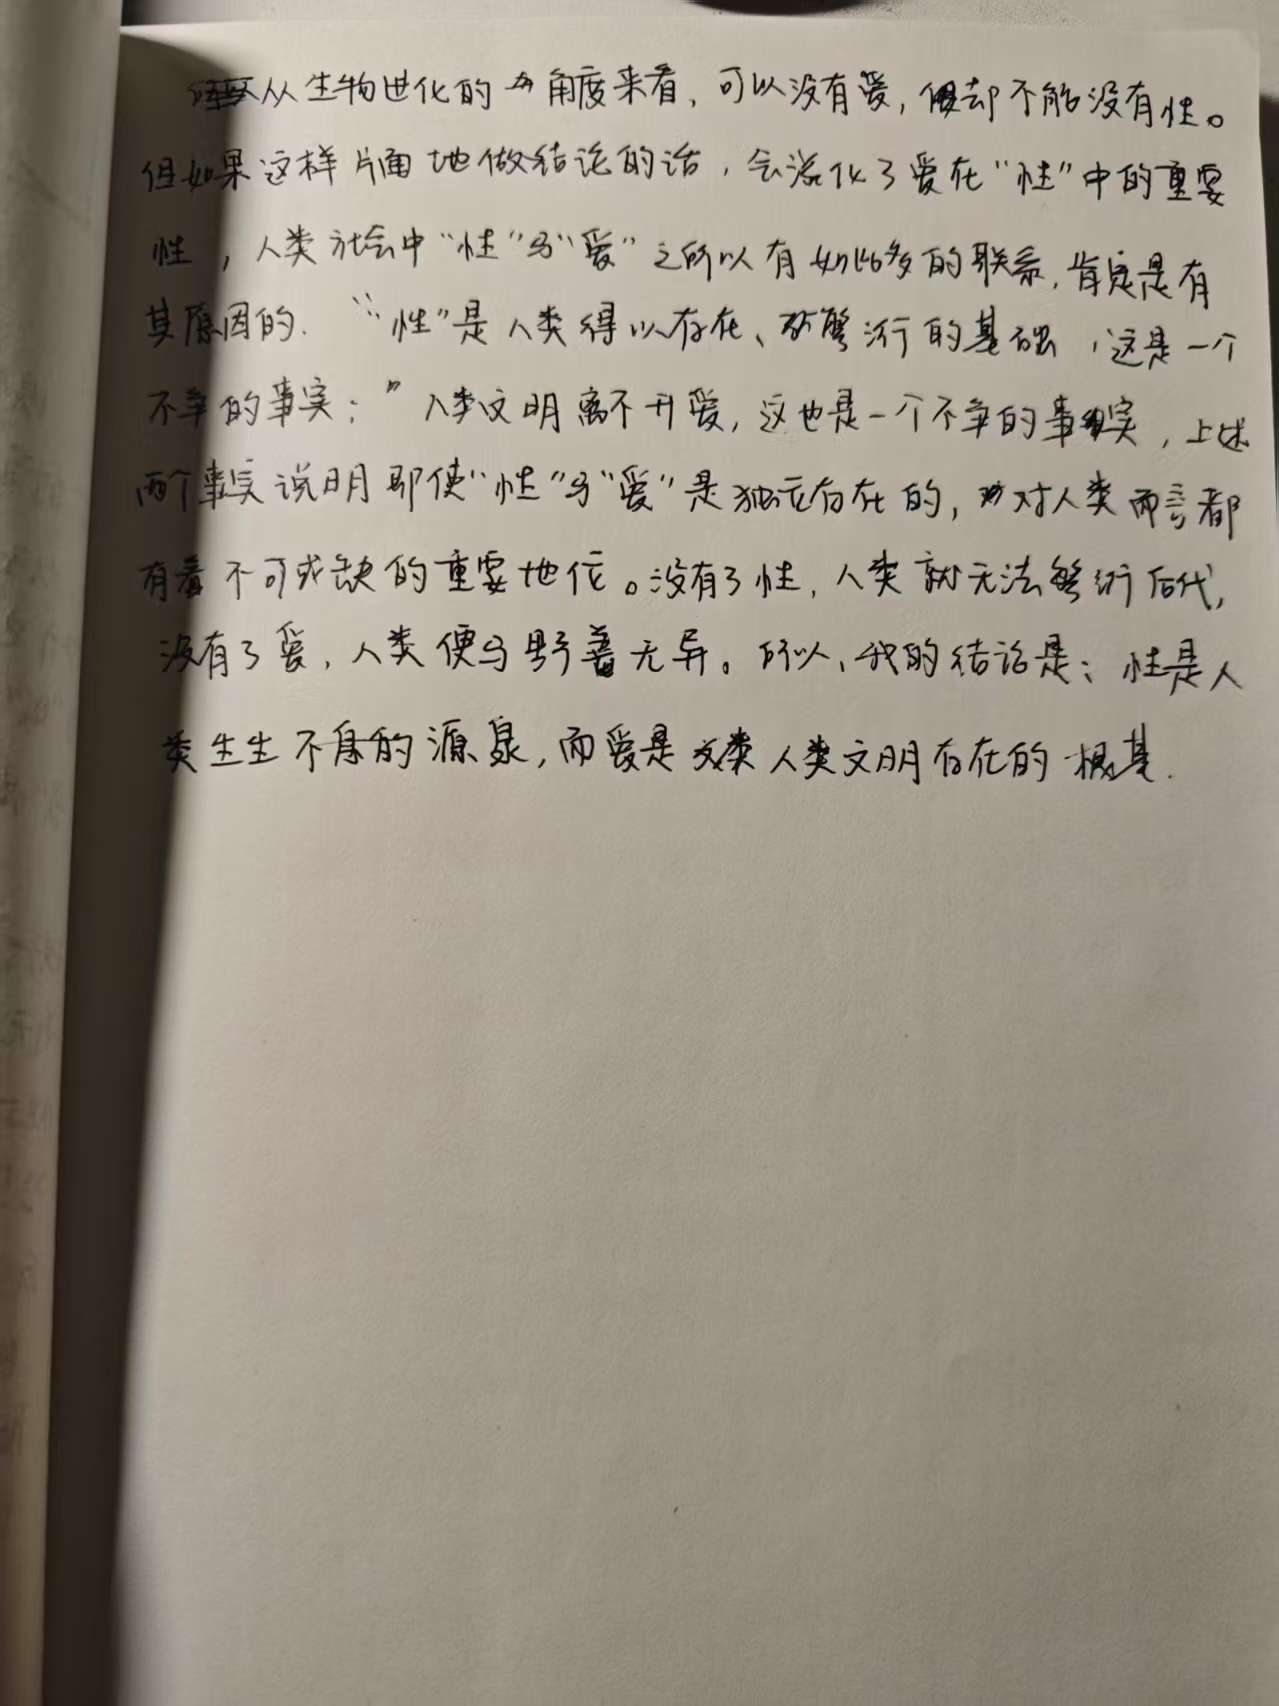 从生物进化的角度来看，可以没有爱，但却不能没有性。
但如果这样片面地做结论的话，会淡化了爱在“性”中的重要
性，人类社会中“性”与“爱”之所以有如此多的联系，肯定是有
其原因的．“性”是人类得以存在、繁衍的基础，这是一个
不争的事实；”人类文明离不开爱，这也是一个不争的事实，上述
两个事实说明即使“性”与“爱”是独立存在的，对人类而言都
有着不可或缺的重要地位。没有了性，人类就无法繁衍后代，
没有了爱，人类便与野兽无异。所以，我的结论是：性是人
类生生不息的源泉，而爱是人类文明存在的根基．